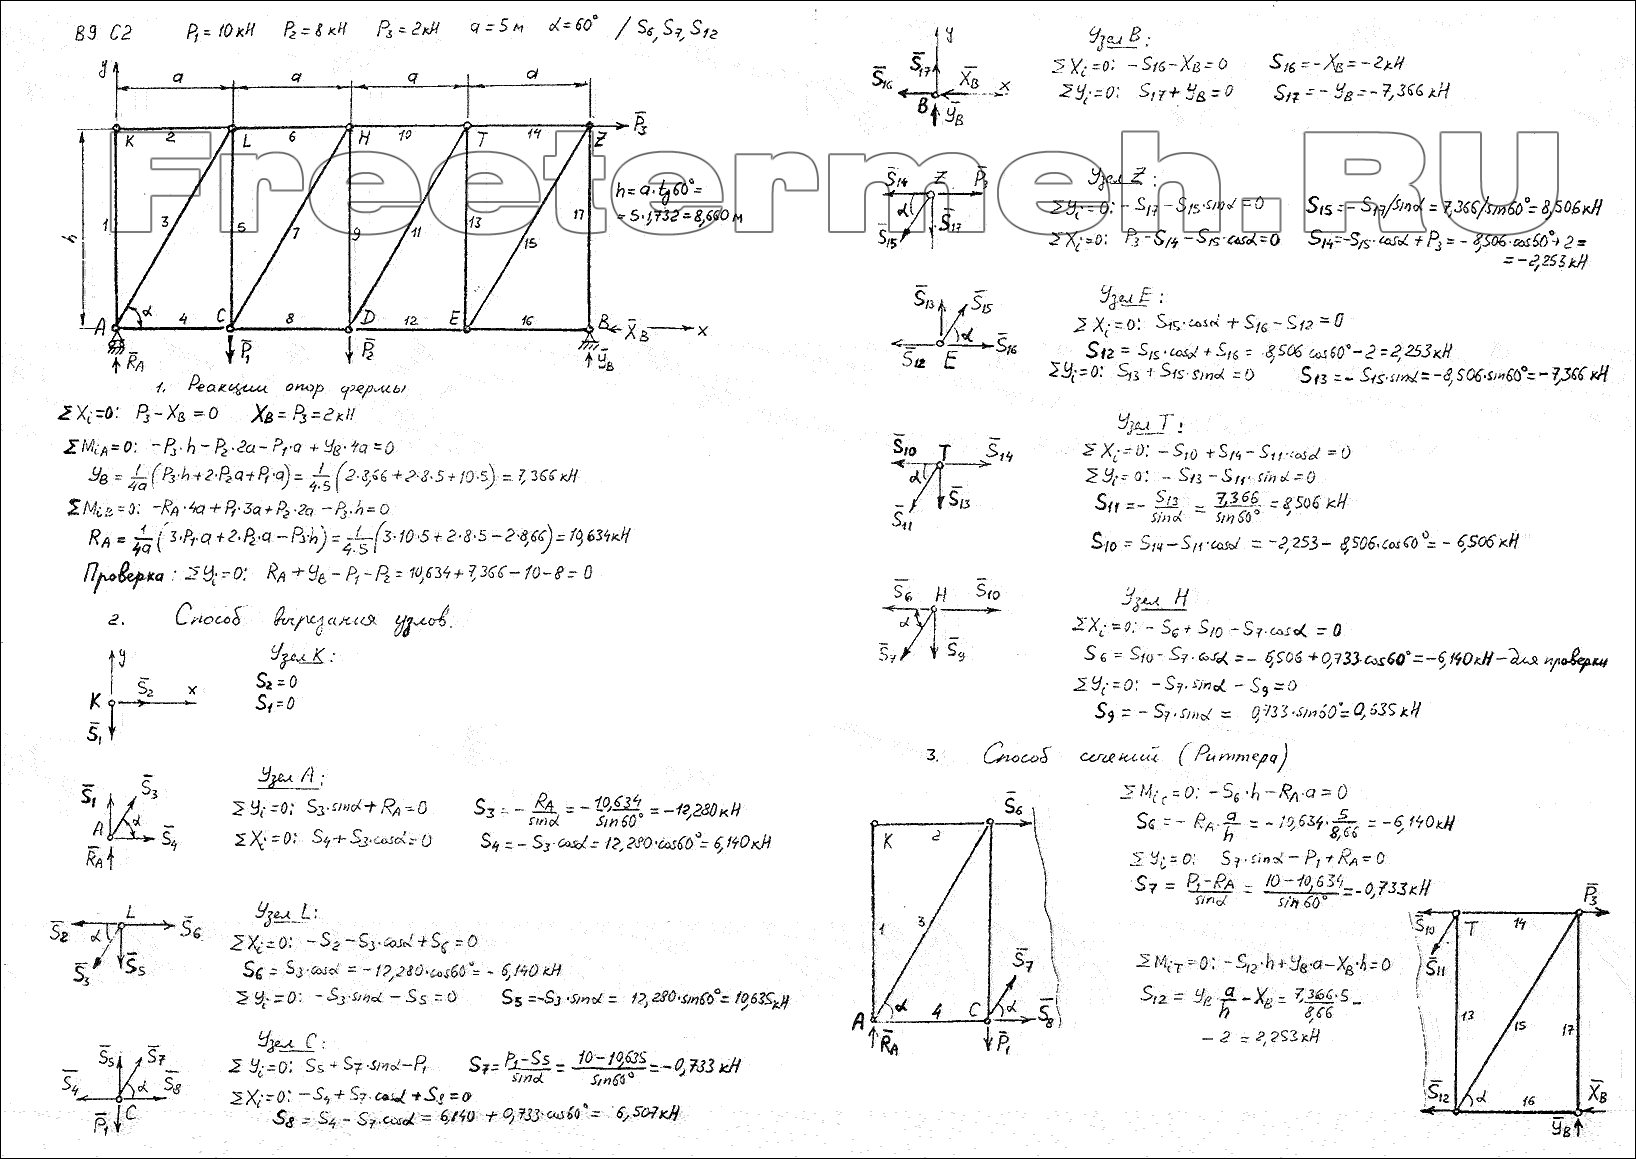 B9 C2 P₁=10кН P₂=8кН P₃=2кН a=5м α=60° / S₆, S₇, S₁₂
y
a a a a
K 2 L 6 H 10 T 14 Z P̄₃
h 1 3 5 7 9 11 13 15 17
h=a·tg60°=
=5·1,732=8,660м
A α 4 C 8 D 12 E 16 B X̄_B x
R̄_A P̄₁ P̄₂ Ȳ_B
1. Реакции опор фермы
ΣXᵢ=0: P₃-X_B=0 X_B=P₃=2кН
ΣM_iA=0: -P₃·h-P₂·2a-P₁·a+Y_B·4a=0
Y_B=1/4a(P₃·h+2·P₂a+P₁·a)=1/4·5(2·8,66+2·8·5+10·5)=7,366кН
ΣM_iB=0: -R_A·4a+P₁·3a+P₂·2a-P₃·h=0
R_A=1/4a(3·P₁·a+2·P₂·a-P₃·h)=1/4·5(3·10·5+2·8·5-2·8,66)=10,634кН
Проверка: ΣYᵢ=0: R_A+Y_B-P₁-P₂=10,634+7,366-10-8=0
2. Способ вырезания узлов.
y
K S̄₂ x
S̄₁
Узел K:
S₂=0
S₁=0
S̄₁ S̄₃
A α S̄₄
R̄_A
Узел A:
ΣYᵢ=0: S₃·sinα+R_A=0 S₃=-R_A/sinα=-10,634/sin60°=-12,280кН
ΣXᵢ=0: S₄+S₃·cosα=0 S₄=-S₃·cosα=12,280·cos60°=6,140кН
L
S̄₂ α S̄₆
S̄₃ S̄₅
Узел L:
ΣXᵢ=0: -S₂-S₃·cosα+S₆=0
S₆=S₃·cosα=-12,280·cos60°=-6,140кН
ΣYᵢ=0: -S₃·sinα-S₅=0 S₅=-S₃·sinα=12,280·sin60°=10,635кН
S̄₅ S̄₇
S̄₄ α S̄₈
P̄₁ C
Узел C:
ΣYᵢ=0: S₅+S₇·sinα-P₁ S₇=P₁-S₅/sinα=10-10,635/sin60°=-0,733кН
ΣXᵢ=0: -S₄+S₇·cosα+S₈=0
S₈=S₄-S₇·cosα=6,140+0,733·cos60°=6,507кН
y
S̄₁₇
S̄₁₆ X̄_B x
B Ȳ_B
Узел B:
ΣXᵢ=0: -S₁₆-X_B=0 S₁₆=-X_B=-2кН
ΣYᵢ=0: S₁₇+Y_B=0 S₁₇=-Y_B=-7,366кН
Freetermeh.RU
S̄₁₄ Z P̄₃
α
S̄₁₅ S̄₁₇
Узел Z:
ΣYᵢ=0: -S₁₇-S₁₅·sinα=0 S₁₅=-S₁₇/sinα=7,366/sin60°=8,506кН
ΣXᵢ=0: P₃-S₁₄-S₁₅·cosα=0 S₁₄=-S₁₅·cosα+P₃=-8,506·cos60°+2=
=-2,253кН
S̄₁₃ S̄₁₅
α S̄₁₆
S̄₁₂ E
Узел E:
ΣXᵢ=0: S₁₅·cosα+S₁₆-S₁₂=0
S₁₂=S₁₅·cosα+S₁₆=8,506cos60°-2=2,253кН
ΣYᵢ=0: S₁₃+S₁₅·sinα=0 S₁₃=-S₁₅·sinα=-8,506·sin60°=-7,366кН
S̄₁₀ T S̄₁₄
α S̄₁₃
S̄₁₁
Узел T:
ΣXᵢ=0: -S₁₀+S₁₄-S₁₁·cosα=0
ΣYᵢ=0: -S₁₃-S₁₁·sinα=0
S₁₁=-S₁₃/sinα=7,366/sin60°=8,506кН
S₁₀=S₁₄-S₁₁·cosα=-2,253-8,506·cos60°=-6,506кН
S̄₆ H S̄₁₀
α
S̄₇ S̄₉
Узел H
ΣXᵢ=0: -S₆+S₁₀-S₇·cosα=0
S₆=S₁₀-S₇·cosα=-6,506+0,733·cos60°=-6,140кН-для проверки
ΣYᵢ=0: -S₇·sinα-S₉=0
S₉=-S₇·sinα=0,733·sin60°=0,635кН
3. Способ сечений (Риттера)
S̄₆
K 2
1 3
S̄₇
A α 4 C α S̄₈
R̄_A P̄₁
ΣM_iC=0: -S₆·h-R_A·a=0
S₆=-R_A·a/h=-10,634·5/8,66=-6,140кН
ΣYᵢ=0: S₇·sinα-P₁+R_A=0
S₇=P₁-R_A/sinα=10-10,634/sin60°=-0,733кН
ΣM_iT=0: -S₁₂·h+Y_B·a-X_B·h=0
S₁₂=Y_B·a/h-X_B=7,366·5/8,66-
-2=2,253кН
P̄₃
S̄₁₀ T 14
S̄₁₁
13 15 17
S̄₁₂ α 16 X̄_B
Ȳ_B